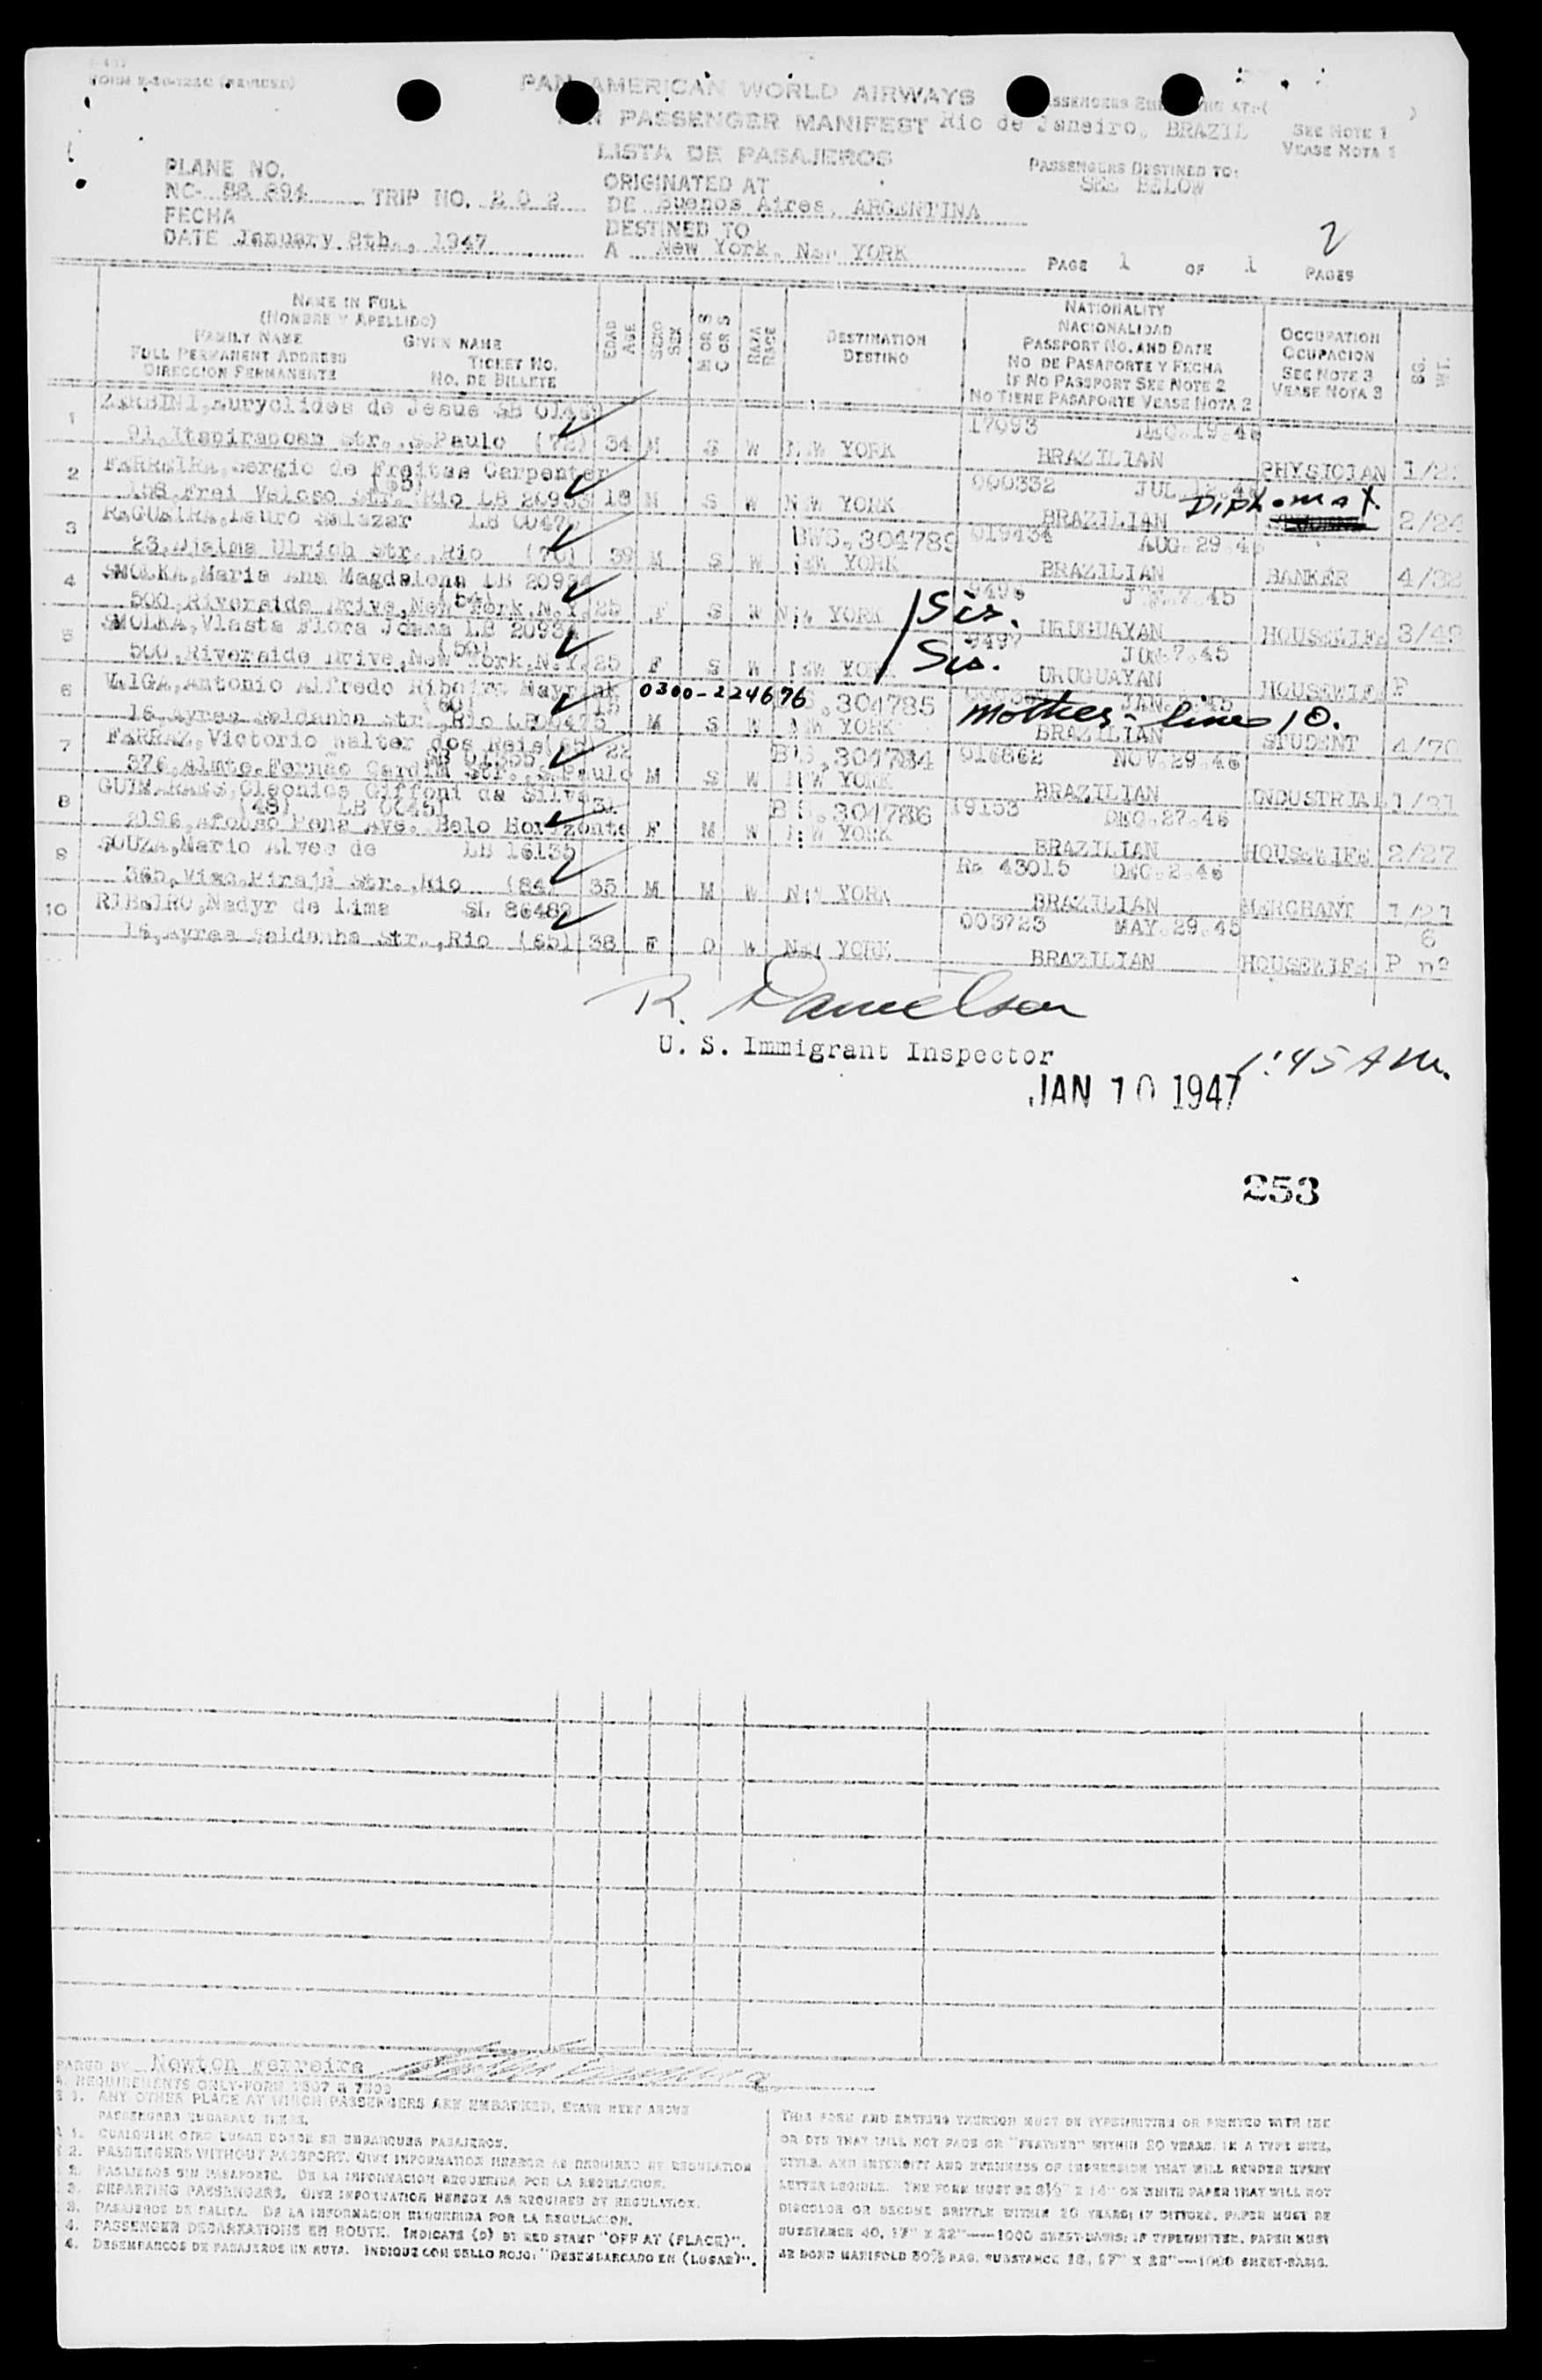 FORM
PAN AMERICAN WORLD AIRWAYS
PASSENGER MANIFEST Rio de Janeiro, BRAZIL
SEE NOTE 1
VEASE NOTA 1
LISTA DE PASAJEROS
PASSENGERS DESTINED TO:
SEE BELOW
PLANE NO.
NC- 88 894 TRIP NO. 2 0 2
ORIGINATED AT
DE Buenos Aires, ARGENTINA
FECHA
DATE January 8th., 1947
DESTINED TO
A New York, New YORK
2
PAGE 1 OF 1 PAGES
NAME IN FULL
(NOMBRE Y APELLIDO)
FAMILY NAME GIVEN NAME
FULL PERMANENT ADDRESS TICKET NO.
DIRECCION PERMANENTE NO. DE BILLETE
EDAD
AGE
SEXO
SEX
M OR S
C OR S
RAZA
RACE
DESTINATION
DESTINO
NATIONALITY
NACIONALIDAD
PASSPORT NO. AND DATE
NO. DE PASAPORTE Y FECHA
IF NO PASSPORT SEE NOTE 2
NO TIENE PASAPORTE VEASE NOTA 2
OCCUPATION
OCUPACION
SEE NOTE 3
VEASE NOTA 3
1 ZERBINI, Euryclides de Jesus 17093 DEC.19.46
91, Itapirapoan Str., S.Paulo (72) 34 M S W NEW YORK BRAZILIAN PHYSICIAN
2 FERREIRA, Sergio de Freitas Carpenter 000332 JUL
Frei Veloso Str. Rio LB 20933 18 M S W NEW YORK BRAZILIAN Diplomat 2/24
3 Lauro Salazar LB BWS.304789 019434 AUG.29.46
23, Djalma Ulrich Str., Rio (70) 39 M S W NEW YORK BRAZILIAN BANKER
4 SMOLKA, Maria Ana Magdalena LB 20934 9496 JUN.7.45
500, Riverside Drive, New York, N.Y. 25 F S W NEW YORK Sis. URUGUAYAN HOUSEWIFE
5 SMOLKA, Vlasta Flora LB 20934 9497 JUN.7.45
(50)
500, Riverside Drive, New York, N.Y. 25 F S W NEW YORK Sis. URUGUAYAN HOUSEWIFE P
6 VEIGA, Antonio Alfredo Ribeiro Mayrink 15 0300-224676 .304785
16, Ayres Saldanha Str., Rio M S W NEW YORK Mother - line 10. BRAZILIAN STUDENT 4/70
7 FARRAZ, Victorio Walter dos Reis 22 304784 016862 NOV.29.46
376, Almte. Fernao Cardim Str., S.Paulo M S W NEW YORK BRAZILIAN INDUSTRIAL 1/31
8 GUIMARAES, Cleonice Giffoni da Silva 304786 19153 DEC.27.46
(48) LB 31
2196, Afonso Pena Ave. Belo Horizonte F M W NEW YORK BRAZILIAN HOUSEWIFE 2/27
9 SOUZA, Mario Alves de LB 16135 Rs 43015 DEC.2.46
365, Visc. Piraja Str., Rio (84) 35 M M W NEW YORK BRAZILIAN MERCHANT 1/21
10 RIBEIRO, Nadyr de Lima SL 86482 003723 MAY.29.45 6
16, Ayres Saldanha Str., Rio (65) 38 F O W NEW YORK BRAZILIAN HOUSEWIFE P nº
R. Danielson
U. S. Immigrant Inspector
1:45 AM.
JAN 10 1947
253
BY Newton Ferreira
1. ANY OTHER PLACE AT WHICH PASSENGERS ARE EMBARKED, STATE HERE ABOVE
1. CUALQUIER OTRO LUGAR DONDE SE EMBARQUEN PASAJEROS.
2. PASSENGERS WITHOUT PASSPORT. GIVE INFORMATION HEREON AS REQUIRED BY REGULATION
2. PASAJEROS SIN PASAPORTE. DE LA INFORMACION REQUERIDA POR LA REGULACION.
3. DEPARTING PASSENGERS. GIVE INFORMATION HEREON AS REQUIRED BY REGULATION.
3. PASAJEROS DE SALIDA. DE LA INFORMACION REQUERIDA POR LA REGULACION.
4. PASSENGER DEBARKATIONS EN ROUTE. INDICATE (D) BY RED STAMP "OFF AT (PLACE)".
4. DESEMBARCOS DE PASAJEROS EN RUTA. INDIQUE CON SELLO ROJO: "DESEMBARCADO EN (LUGAR)".
THIS FORM AND ENTRIES THEREON MUST BE TYPEWRITTEN OR PRINTED WITH INK
OR DYE THAT WILL NOT FADE OR "FEATHER" WITHIN 20 YEARS, IN A TYPE SIZE,
STYLE, AND INTENSITY AND EVENNESS OF IMPRESSION THAT WILL RENDER EVERY
LETTER LEGIBLE. THE FORM MUST BE 8½" X 14" ON WHITE PAPER THAT WILL NOT
DISCOLOR OR BECOME BRITTLE WITHIN 20 YEARS; IF DITTOED, PAPER MUST BE
SUBSTANCE 40, 17" X 22"—1000 SHEET-BASIS; IF TYPEWRITTEN, PAPER MUST
BE BOND MANIFOLD 50% RAG, SUBSTANCE 16, 17" X 22"—1000 SHEET-BASIS.